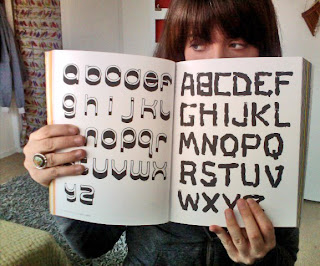 abcdef
ghijkl
mnopqr
tuvwx
yz
ABCDEF
GHIJKL
MNOPQ
RSTUV
WXYZ